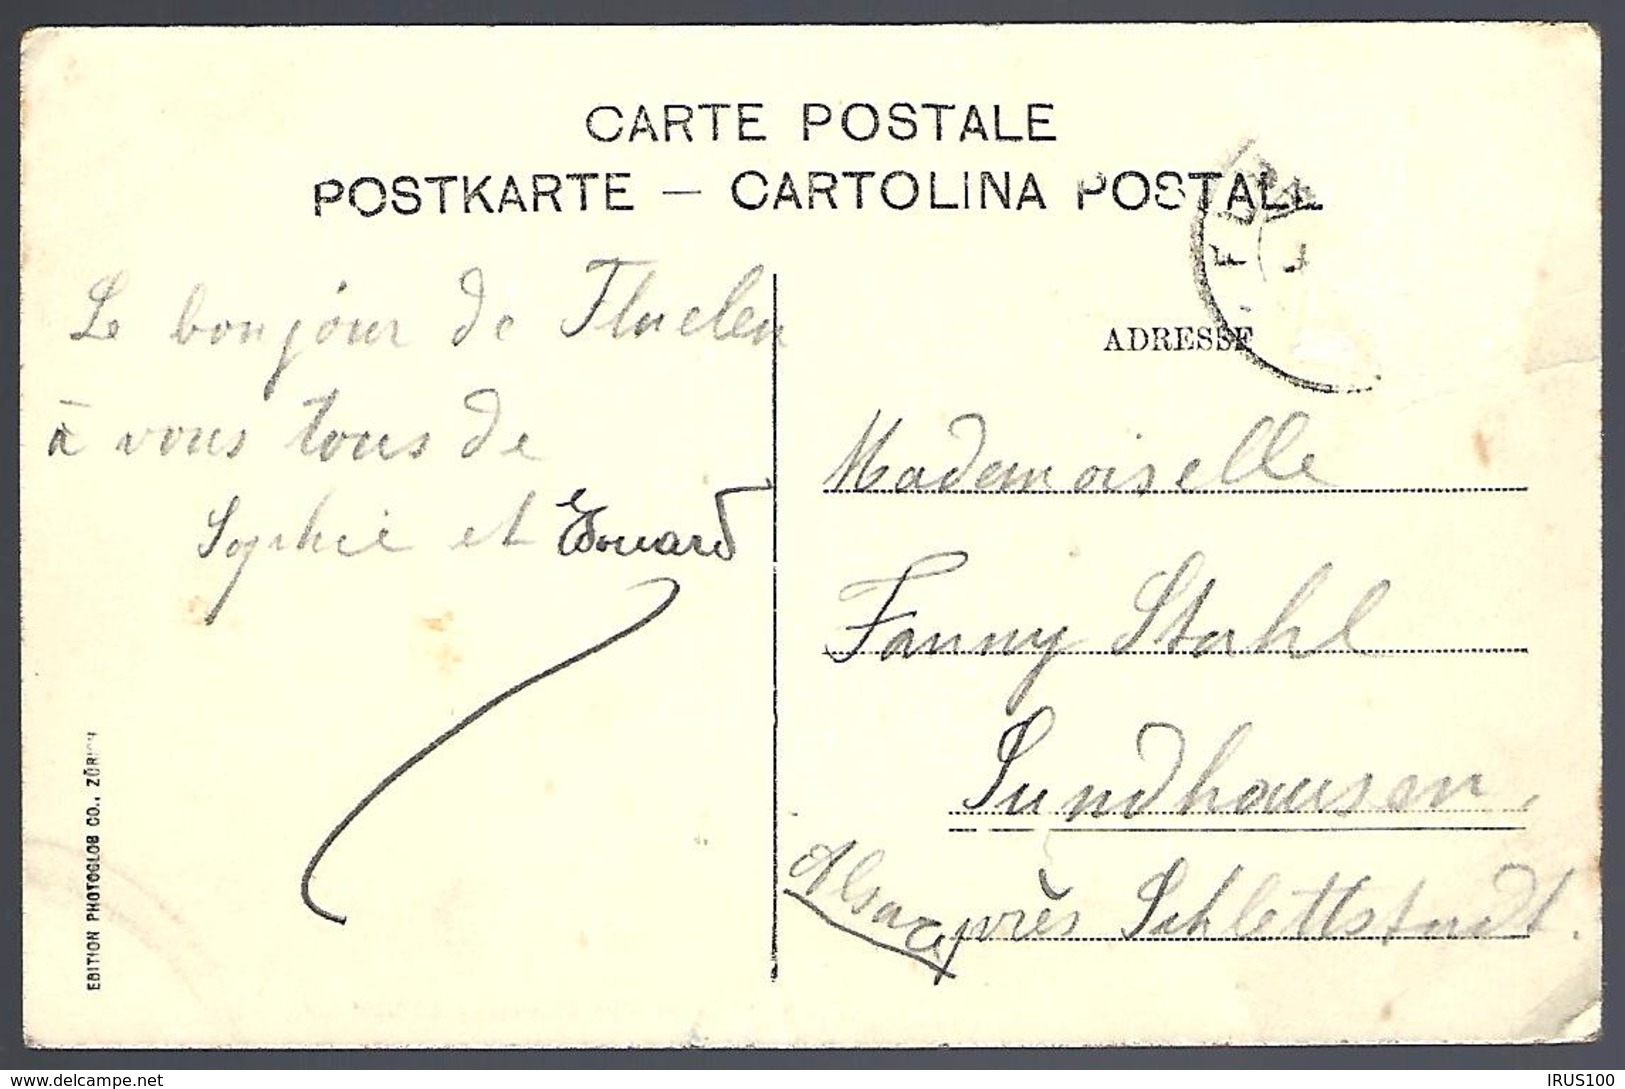 CARTE POSTALE
POSTKARTE — CARTOLINA POSTALE
Le bonjour de Fluelen
à vous tous de
Sophie et Edouard
ADRESSE
Mademoiselle
Fanny Stahl
Sundhausen,
près Schlettstadt.
Alsace
EDITION PHOTOGLOB CO., ZÜRICH
delcampe.net
IRUS100